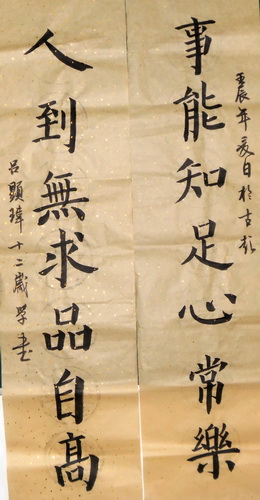 壬辰年夏日於古彭
事能知足心常樂
人到無求品自高
呂顯瑋十二歲學書